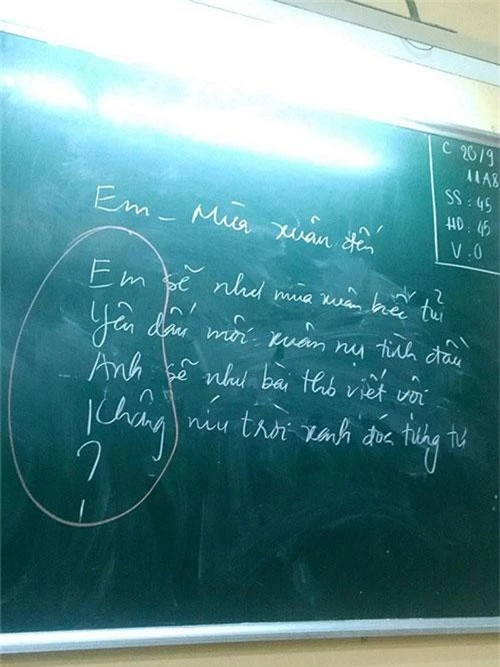 Em - Mùa xuân đến
Em sẽ như mùa xuân biếc
Yên dấu môi xuân nụ tình đầu
Anh sẽ như bài thơ viết vội
Không níu trời xanh đoá tương tư
?
C 20/9
11A8
SS : 45
HD : 45
V : 0